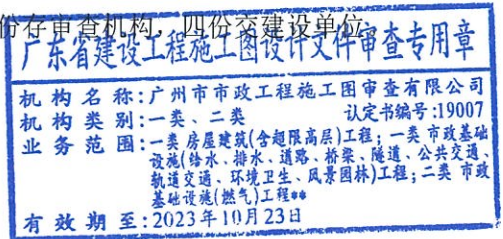 份存审查机构，四份交建设单位。
广东省建设工程施工图设计文件审查专用章
机构名称:广州市市政工程施工图审查有限公司
机构类别:一类、二类 认定书编号:19007
业务范围:一类 房屋建筑(含超限高层)工程; 一类 市政基础
设施(给水、排水、道路、桥梁、隧道、公共交通、
轨道交通、环境卫生、风景园林)工程; 二类 市政
基础设施(燃气)工程**
有效期至:2023年10月23日